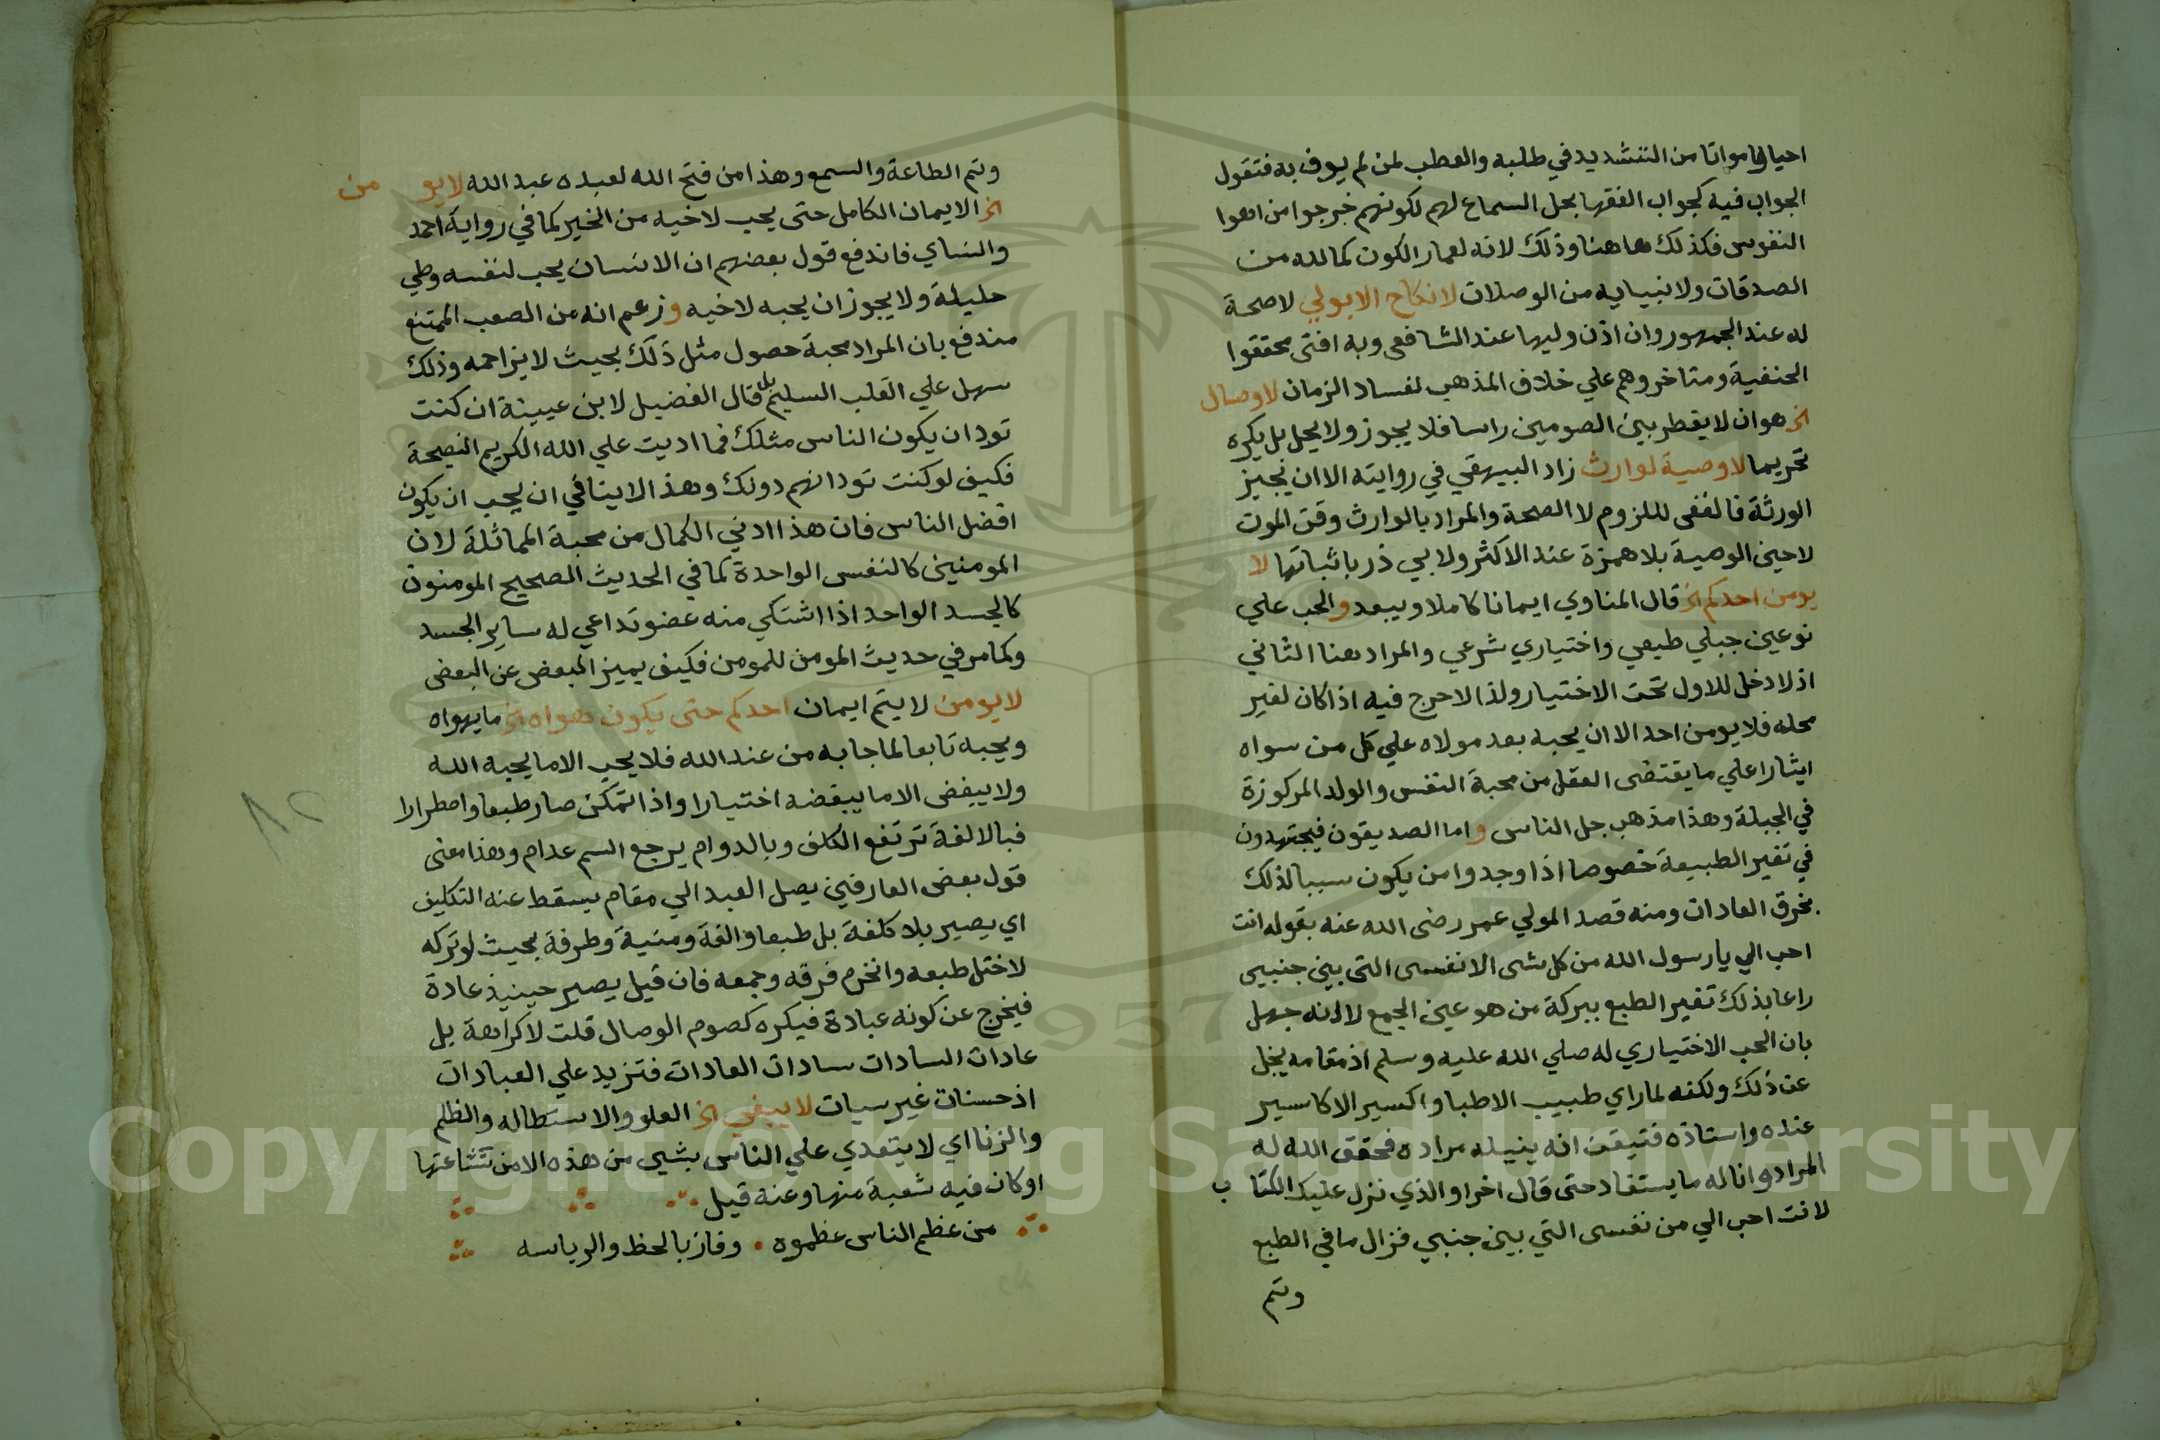 احيا وامواتا من التشديد في طلبه والعطب لمن لم يوف به فتقول
الجواب فيه كجواب الفقها بحل السماع لهم لكونهم خرجوا من اهوا
النفوس فكذلك هاهنا وذلك لانه لعمار الكون كمالله من
الصدقات ولانبيايه من الوصلات لا نكاح الا بولي لا صحة
له عند الجمهور وان اذن وليها عند الشافعي وبه افتي محققوا
الحنفية ومتاخروهم علي خلاف المذهب لفساد الزمان لا وصال
الخ هو ان لا يفطر بين الصومين راسا فلا يجوز ولا يحل بل يكره
تحريما لا وصية لوارث زاد البيهقي في روايته الا ان تجيز
الورثة فالنفي لللزوم لا الصحة والمراد بالوارث وقت الموت
لا حين الوصية بلا همزة عند الاكثر ولابي ذر باثباتها لا
يومن احدكم الخ قال المناوي ايمانا كاملا ويبعد والحب علي
نوعين جبلي طبيعي واختياري شرعي والمراد هنا الثاني
اذ لا دخل للاول تحت الاختيار ولذا لا حرج فيه اذا كان لغير
محله فلا يومن احد الا ان يحبه بعد مولاه علي كل من سواه
ايثارا علي ما يقتضي العقل من محبة النفس والولد المركوزة
في الجبلة وهذا مذهب جل الناس واما الصديقون فيجتهدون
في تغير الطبيعة خصوصا اذا وجدوا من يكون سببا لذلك
بخرق العادات ومنه قصد المولي عمر رضي الله عنه بقوله انت
احب الي يا رسول الله من كل شي الا نفسي التي بين جنبيي
راعا بذلك تغير الطبع ببركة من هو عين الجمع لا لانه جهل
بان الحب الاختياري له صلي الله عليه وسلم اذ مقامه يجل
عن ذلك ولكنه لما راي طبيب الاطبا واكسير الاكاسير
عنده واستاذه فتيقن انه ينيله مراده فحقق الله له
المراد وانا له ما يستفاد حتي قال اخرا والذي نزل عليك الكتاب
لانت احب الي من نفسي التي بين جنبي فزال ما في الطبع
وتم
وتم الطاعة والسمع وهذا من فتح الله لعبده عبد الله لا يومن
الخ الايمان الكامل حتي يحب لاخيه من الخير كما في رواية احمد
والنساي فاندفع قول بعضهم ان الانسان يحب لنفسه وطي
حليلة ولا يجوز ان يحبه لاخيه وزعم انه من الصعب الممتنع
مندفع بان المراد محبة حصول مثل ذلك بحيث لا يزاحمه وذلك
سهل علي القلب السليم بل قال الفضيل لابن عيينة ان كنت
تود ان يكون الناس مثلك فما اديت علي الله الكريم النصيحة
فكيف لو كنت تود انهم دونك وهذا لا ينافي ان يحب ان يكون
افضل الناس فان هذا ادني الكمال من محبة المماثلة لان
المومنين كالنفس الواحدة كما في الحديث الصحيح المومنون
كالجسد الواحد اذا اشتكي منه عضو تداعي له ساير الجسد
وكما مر في حديث المومن للمومن فكيف يميز البعض عن البعض
لا يومن لا يتم ايمان احدكم حتي يكون هواه الخ ما يهواه
ويحبه تابعا لما جا به من عند الله فلا يحب الا ما يحبه الله
ولا يبغض الا ما يبغضه اختيارا واذا تمكن صار طبعا واضطرارا
فبالالفة ترتفع الكلف وبالدوام يرجع السم عدام وهذا معني
قول بعض العارفين يصل العبد الي مقام يسقط عنه التكليف
اي يصير بلا كلفة بل طبعا والفة ومنية وطرفة بحيث لو تركه
لاختل طبعه وانخرم فرقه وجمعه فان قيل يصير حينيذ عادة
فيخرج عن كونه عبادة فيكره كصوم الوصال قلت لا كراهة بل
عادات السادات سادات العادات فتزيد علي العبادات
اذ حسنات غير سيات لا يبغي الخ العلو والاستطاله والظلم
والزنا اي لا يتعدي علي الناس بشي من هذه الا من نشاعنها
او كان فيه شعبة منها وعنه قيل
من عظم الناس عظموه . وفاز بالحظ والرياسه
٨٢
Copyright © King Saud University
1957